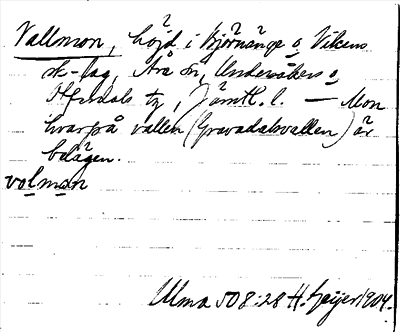 Vallmon, höjd i Björnänge o. Vikens
sk-lag, Åre sn, Undersåkers o
Offerdals tg, Jämtl. l. — Mon
hvarpå vallen (Gravadalsvallen) är
belägen.
volmon
Ulma 508:28 H. Geijer 1904.